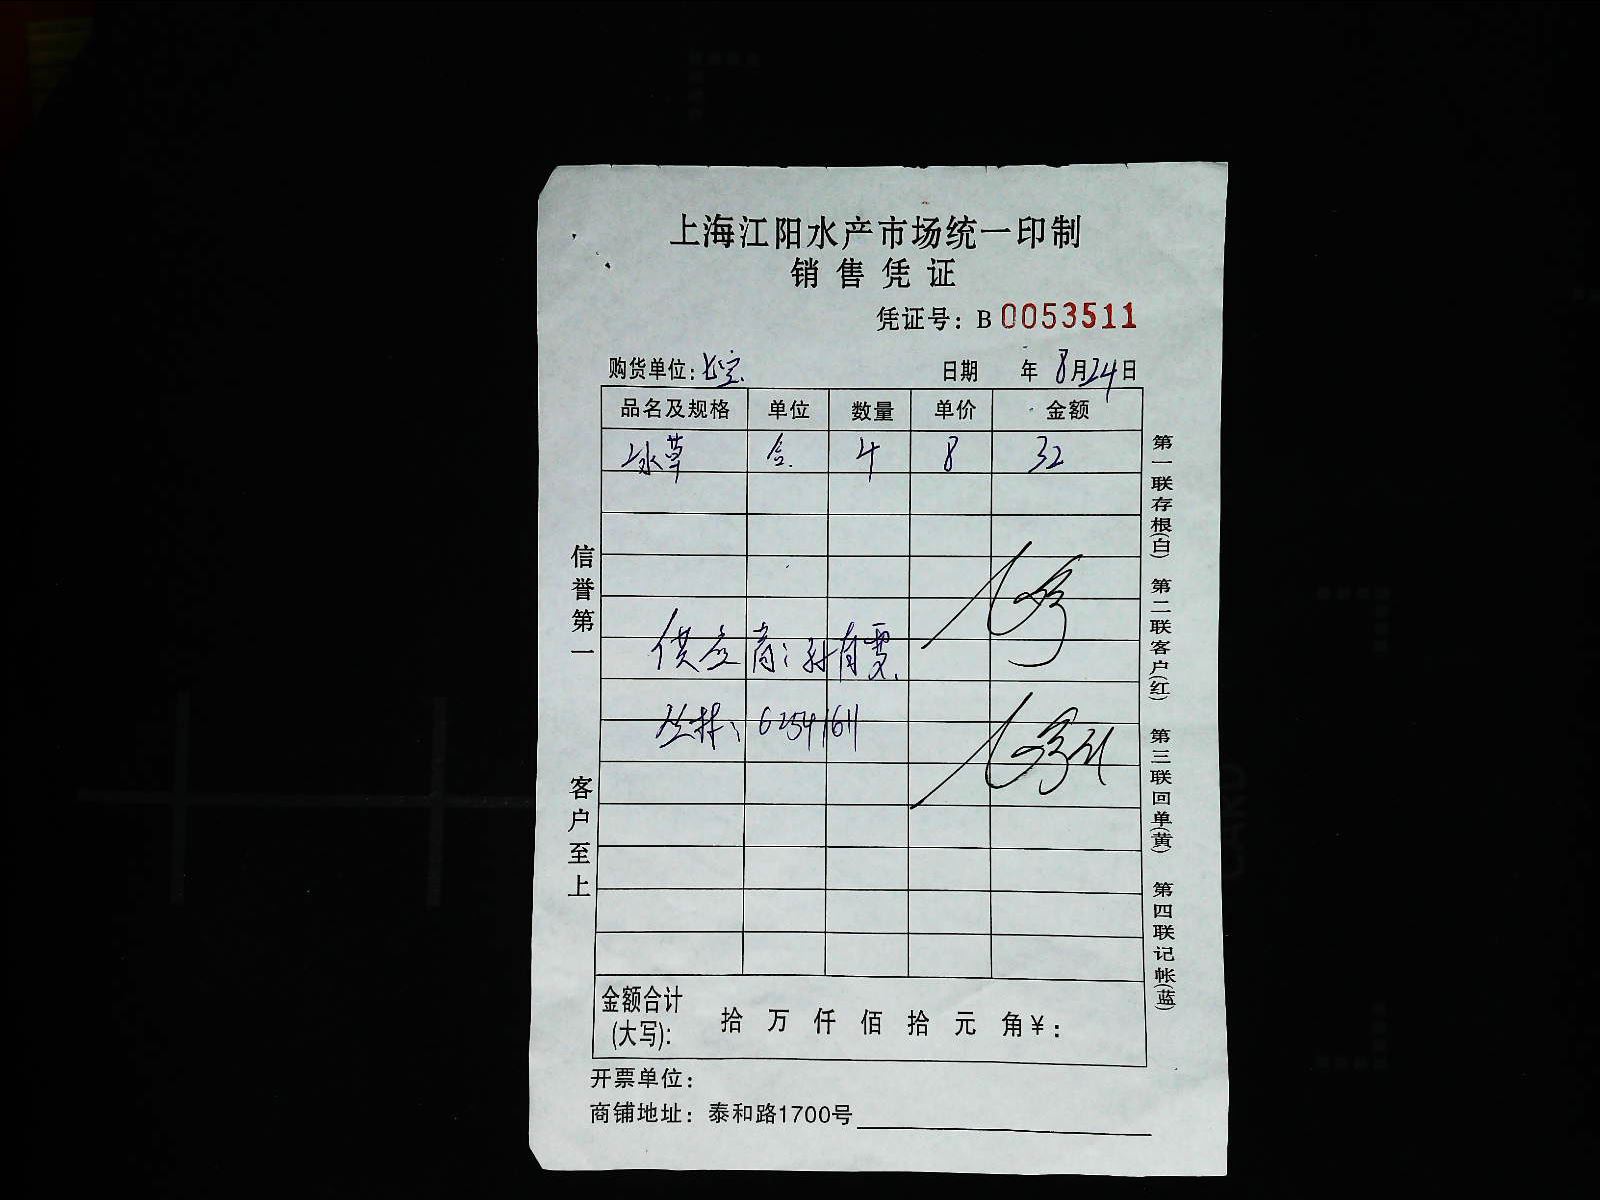 上海江阳水产市场统一印制
销售凭证
凭证号：B 0053511
购货单位： 日期 年 8月24日
品名及规格 单位 数量 单价 金额
冰草 合 4 8 32
供应商：孙育雯
62541611
金额合计(大写)： 拾 万 仟 佰 拾 元 角 ¥：
开票单位：
商铺地址：泰和路1700号
信誉第一 客户至上
第一联存根(白) 第二联客户(红) 第三联回单(黄) 第四联记帐(蓝)